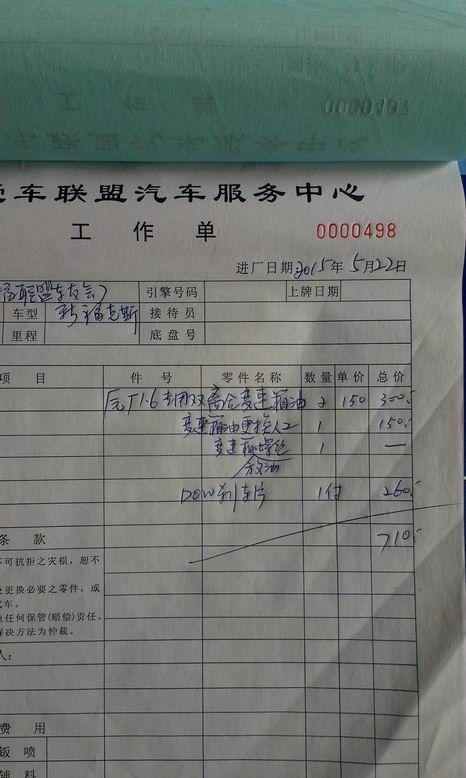 工作单
0000497
车联盟汽车服务中心
工作单 0000498
进厂日期 2015年5月22日
联盟车友会) 引擎号码 上牌日期
车型 新福克斯 接待员
里程 底盘号
项目 件号 零件名称 数量 单价 总价
原厂1.6专用双离合变速箱油 2 150 300.
变速箱油更换人工 1 150.
变速箱螺丝 1 —
放油
DOW刹车片 1付 260.
条款 710.
不可抗拒之灾损,恕不
更换必要之零件,或
车。
任何保管(赔偿)责任。
解决方法为仲裁。
人:
费用
钣喷
辅料